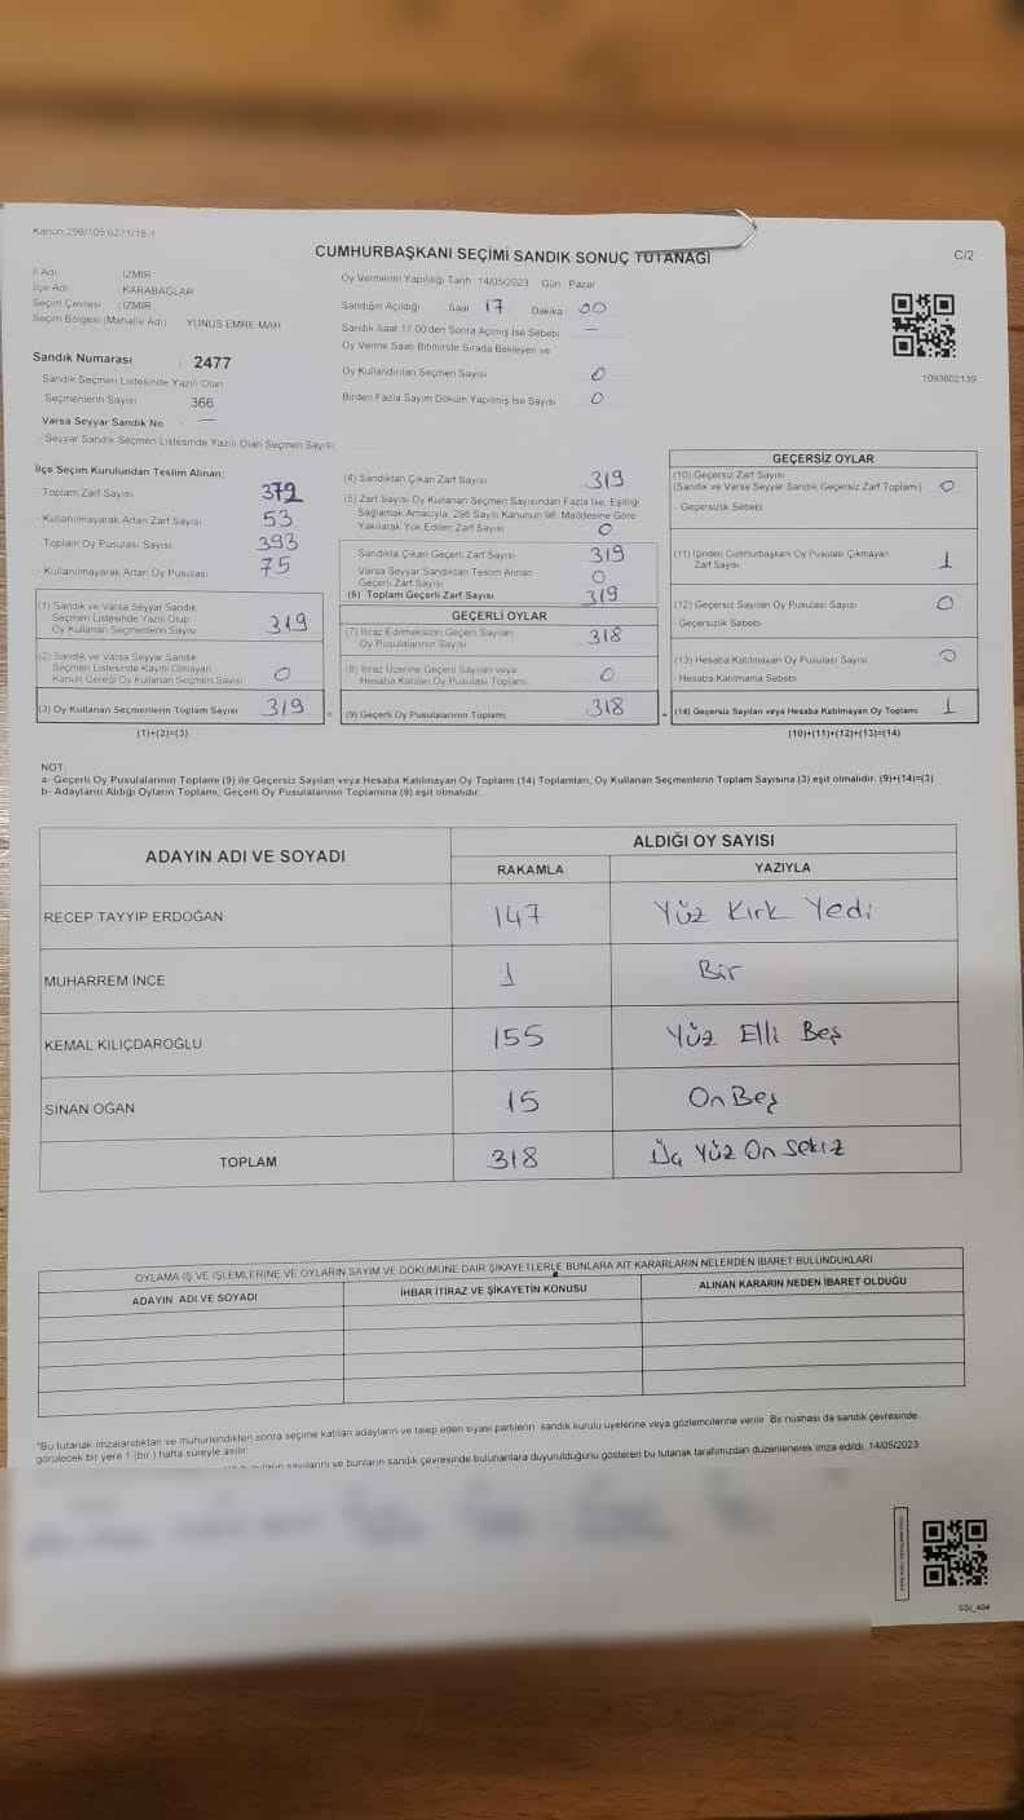 Kanun:298/105;6271/18-1
CUMHURBAŞKANI SEÇİMİ SANDIK SONUÇ TUTANAĞI
C/2
İl Adı : İZMİR
İlçe Adı : KARABAĞLAR
Seçim Çevresi : İZMİR
Seçim Bölgesi (Mahalle Adı) YUNUS EMRE MAH
Sandık Numarası : 2477
Sandık Seçmen Listesinde Yazılı Olan
Seçmenlerin Sayısı : 366
Varsa Seyyar Sandık No —
Seyyar Sandık Seçmen Listesinde Yazılı Olan Seçmen Sayısı
Oy Vermenin Yapıldığı Tarih :14/05/2023 Gün Pazar
Sandığın Açıldığı Saat 17 Dakika 00
Sandık Saat 17.00'den Sonra Açılmış İse Sebebi —
Oy Verme Saati Bitiminde Sırada Bekleyen ve
Oy Kullandırılan Seçmen Sayısı 0
Birden Fazla Sayım Döküm Yapılmış İse Sayısı 0
1093602139
İlçe Seçim Kurulundan Teslim Alınan:
Toplam Zarf Sayısı 372
Kullanılmayarak Artan Zarf Sayısı 53
Toplam Oy Pusulası Sayısı 393
Kullanılmayarak Artan Oy Pusulası 75
(1) Sandık ve Varsa Seyyar Sandık
Seçmen Listesinde Yazılı Olup
Oy Kullanan Seçmenlerin Sayısı 319
(2) Sandık ve Varsa Seyyar Sandık
Seçmen Listesinde Kayıtlı Olmayan
Kanun Gereği Oy Kullanan Seçmen Sayısı 0
(3) Oy Kullanan Seçmenlerin Toplam Sayısı 319
(1)+(2)=(3)
(4) Sandıktan Çıkan Zarf Sayısı 319
(5) Zarf Sayısı Oy Kullanan Seçmen Sayısından Fazla İse, Eşitliği
Sağlamak Amacıyla, 298 Sayılı Kanunun 98. Maddesine Göre
Yakılarak Yok Edilen Zarf Sayısı 0
Sandıkta Çıkan Geçerli Zarf Sayısı 319
Varsa Seyyar Sandıktan Teslim Alınan
Geçerli Zarf Sayısı 0
(6) Toplam Geçerli Zarf Sayısı 319
GEÇERLİ OYLAR
(7) İtiraz Edilmeksizin Geçerli Sayılan
Oy Pusulalarının Sayısı 318
(8) İtiraz Üzerine Geçerli Sayılan veya
Hesaba Katılan Oy Pusulası Toplamı 0
(9) Geçerli Oy Pusulalarının Toplamı 318
GEÇERSİZ OYLAR
(10) Geçersiz Zarf Sayısı
(Sandık ve Varsa Seyyar Sandık Geçersiz Zarf Toplamı) 0
Geçersizlik Sebebi
(11) İçinden Cumhurbaşkanı Oy Pusulası Çıkmayan
Zarf Sayısı 1
(12) Geçersiz Sayılan Oy Pusulası Sayısı 0
Geçersizlik Sebebi
(13) Hesaba Katılmayan Oy Pusulası Sayısı 0
Hesaba Katılmama Sebebi
(14) Geçersiz Sayılan veya Hesaba Katılmayan Oy Toplamı 1
(10)+(11)+(12)+(13)=(14)
NOT:
a- Geçerli Oy Pusulalarının Toplamı (9) ile Geçersiz Sayılan veya Hesaba Katılmayan Oy Toplamı (14) Toplamları, Oy Kullanan Seçmenlerin Toplam Sayısına (3) eşit olmalıdır. (9)+(14)=(3)
b- Adayların Aldığı Oyların Toplamı, Geçerli Oy Pusulalarının Toplamına (9) eşit olmalıdır.
ADAYIN ADI VE SOYADI
ALDIĞI OY SAYISI
RAKAMLA YAZIYLA
RECEP TAYYİP ERDOĞAN 147 Yüz Kırk Yedi
MUHARREM İNCE 1 Bir
KEMAL KILIÇDAROĞLU 155 Yüz Elli Beş
SİNAN OĞAN 15 On Beş
TOPLAM 318 Üç Yüz On Sekiz
OYLAMA İŞ VE İŞLEMLERİNE VE OYLARIN SAYIM VE DÖKÜMÜNE DAİR ŞİKAYETLERLE BUNLARA AİT KARARLARIN NELERDEN İBARET BULUNDUKLARI
ADAYIN ADI VE SOYADI İHBAR İTİRAZ VE ŞİKAYETİN KONUSU ALINAN KARARIN NEDEN İBARET OLDUĞU
"Bu tutanak imzalandıktan ve mühürlendikten sonra seçime katılan adayların ve talep eden siyasi partilerin sandık kurulu üyelerine veya gözlemcilerine verilir. Bir nüshası da sandık çevresinde
görülecek bir yere 1 (bir) hafta süreyle asılır.
ve bunların sandık çevresinde bulunanlara duyurulduğunu gösteren bu tutanak tarafımızdan düzenlenerek imza edildi. 14/05/2023